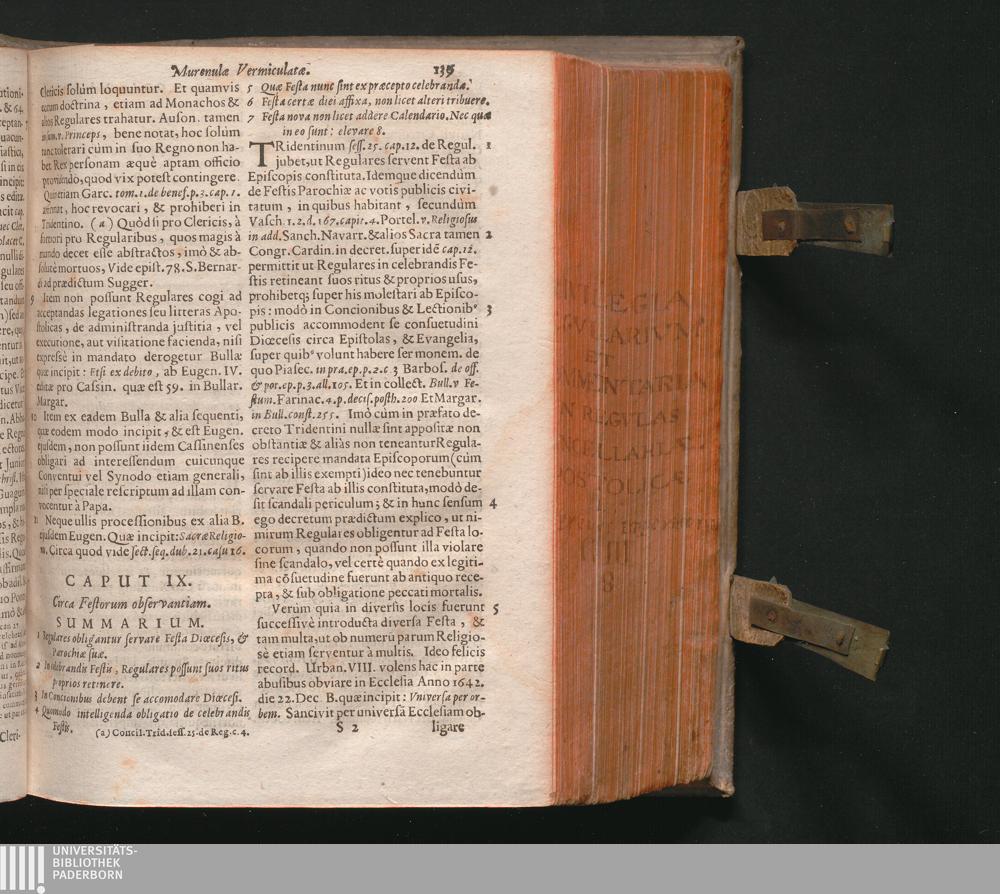 Murenulæ Vermiculatæ. 139
Clericis solùm loquuntur. Et quamvis
eorum doctrina, etiam ad Monachos &
alios Regulares trahatur. Auson. tamen
in sum. v. Princeps, bene notat, hoc solùm
tunc tolerari cùm in suo Regno non ha-
bet Rex personam æquè aptam officio
providendo, quod vix potest contingere.
Quinetiam Garc. tom. 1. de benef. p. 2. cap. 1.
affirmat, hoc revocari, & prohiberi in
Tridentino. (a) Quòd si pro Clericis, à
fortiori pro Regularibus, quos magis à
mundo decet esse abstractos, imò & ab-
solutè mortuos, Vide epist. 78. S. Bernar-
di ad prædictum Sugger.
9 Item non possunt Regulares cogi ad
acceptandas legationes seu litteras Apo-
stolicas, de administranda justitia, vel
executione, aut visitatione facienda, nisi
expressè in mandato derogetur Bullæ
quæ incipit: Etsi ex debito, ab Eugen. IV.
editæ pro Cassin. quæ est 59. in Bullar.
Margar.
10 Item ex eadem Bulla & alia sequenti,
quæ eodem modo incipit, & est Eugen.
ejusdem, non possunt iidem Cassinenses
obligari ad interessendum cuicunque
Conventui vel Synodo etiam generali,
nisi per speciale rescriptum ad illam con-
vocentur à Papa.
11 Neque ullis processionibus ex alia B.
ejusdem Eugen. Quæ incipit: Sacræ Religio-
n. Circa quod vide sect. seq. dub. 21. casu 16.
CAPUT IX.
Circa Festorum observantiam.
SUMMARIUM.
1 Regulares obligantur servare Festa Diœcesis, &
Parochiæ suæ.
2 In celebrandis Festis, Regulares possunt suos ritus
proprios retinere.
3 In Concionibus debent se accomodare Diœcesi.
4 Quomodo intelligenda obligatio de celebrandis
Festis.
(a) Concil. Trid. sess. 25. de Reg. c. 4.
5 Quæ Festa nunc sint ex præcepto celebranda.
6 Festa certæ diei affixa, non licet alteri tribuere.
7 Festa nova non licet addere Calendario. Nec quæ
in eo sunt: elevare 8.
TRidentinum sess. 25. cap. 12. de Regul. 1
jubet, ut Regulares servent Festa ab
Episcopis constituta. Idemque dicendum
de Festis Parochiæ ac votis publicis civi-
tatum, in quibus habitant, secundùm
Vasch. 1. 2. d. 167. capit. 4. Portel. v. Religiosus
in add. Sanch. Navarr. & alios Sacra tamen 2
Congr. Cardin. in decret. super idē cap. 12.
permittit ut Regulares in celebrandis Fe-
stis retineant suos ritus & proprios usus,
prohibetq; super his molestari ab Episco-
pis: modò in Concionibus & Lectionib⁹ 3
publicis accommodent se consuetudini
Diœcesis circa Epistolas, & Evangelia,
super quib⁹ volunt habere sermonem. de
quo Piasec. in pra. ep. p. 2. c 3 Barbos. de off.
& pot. ep. p. 3. all. 105. Et in collect. Bull. v Fe-
stum. Farinac. 4. p. decis. posth. 200 Et Margar.
in Bull. const. 255. Imò cùm in præfato de-
creto Tridentini nullæ sint appositæ non
obstantiæ & aliàs non teneantur Regula-
res recipere mandata Episcoporum (cùm
sint ab illis exempti) ideo nec tenebuntur
servare Festa ab illis constituta, modò de-
sit scandali periculum; & in hunc sensum 4
ego decretum prædictum explico, ut ni-
mirum Regulares obligentur ad Festa lo-
corum, quando non possunt illa violare
sine scandalo, vel certè quando ex legiti-
ma cōsuetudine fuerunt ab antiquo rece-
pta, & sub obligatione peccati mortalis.
Verùm quia in diversis locis fuerunt 5
successivè introducta diversa Festa, &
tam multa, ut ob numerū parum Religio-
sè etiam serventur à multis. Ideo felicis
record. Urban. VIII. volens hac in parte
abusibus obviare in Ecclesia Anno 1642.
die 22. Dec B. quæ incipit: Vniversa per or-
bem. Sancivit per universā Ecclesiam ob-
S 2 ligare
UNIVERSITÄTS-
BIBLIOTHEK
PADERBORN